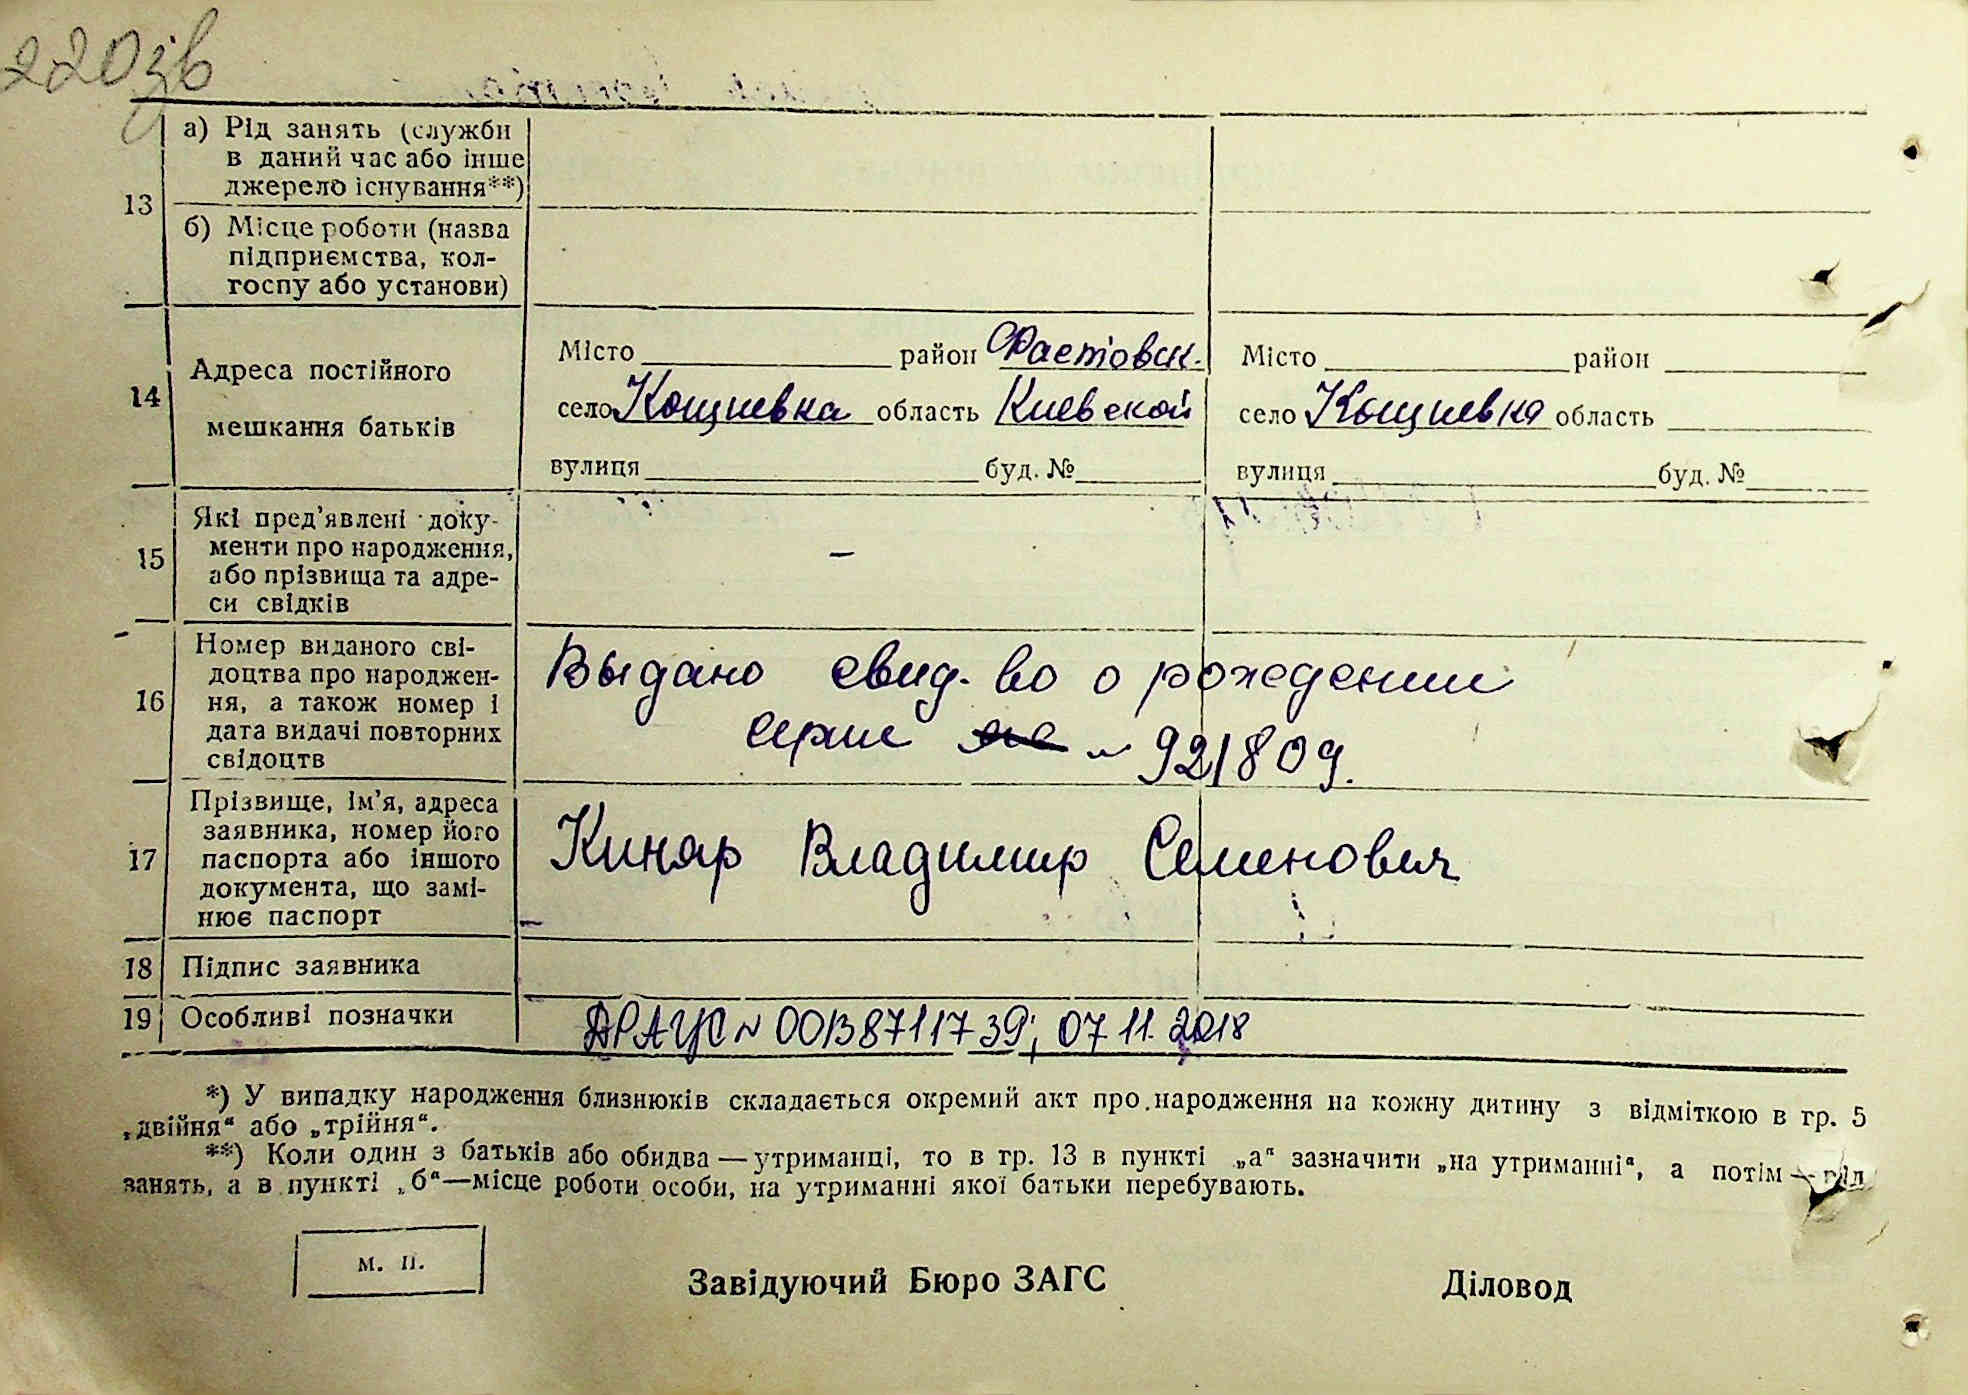 220зв
13
а) Рід занять (служби
в даний час або інше
джерело існування**)
б) Місце роботи (назва
підприємства, кол-
госпу або установи)
14
Адреса постійного
мешкання батьків
Місто район Фастовск.
село Кощиевка область Киевской
вулиця буд. №
Місто район
село Кощиевка область
вулиця буд. №
15
Які пред’явлені доку-
менти про народження,
або прізвища та адре-
си свідків
–
16
Номер виданого сві-
доцтва про народжен-
ня, а також номер і
дата видачі повторних
свідоцтв
Выдано свид-во о рождении
серие № 921809.
17
Прізвище, ім’я, адреса
заявника, номер його
паспорта або іншого
документа, що замі-
нює паспорт
Кинар Владимир Семенович
18
Підпис заявника
19
Особливі позначки
ДРАЦС № 00138711739; 07 11. 2018
*) У випадку народження близнюків складається окремий акт про народження на кожну дитину з відміткою в гр. 5
„двійня“ або „трійня“.
**) Коли один з батьків або обидва — утриманці, то в гр. 13 в пункті „а“ зазначити „на утриманні“, а потім — рід
занять, а в пункті „б“—місце роботи особи, на утриманні якої батьки перебувають.
м. п.
Завідуючий Бюро ЗАГС
Діловод